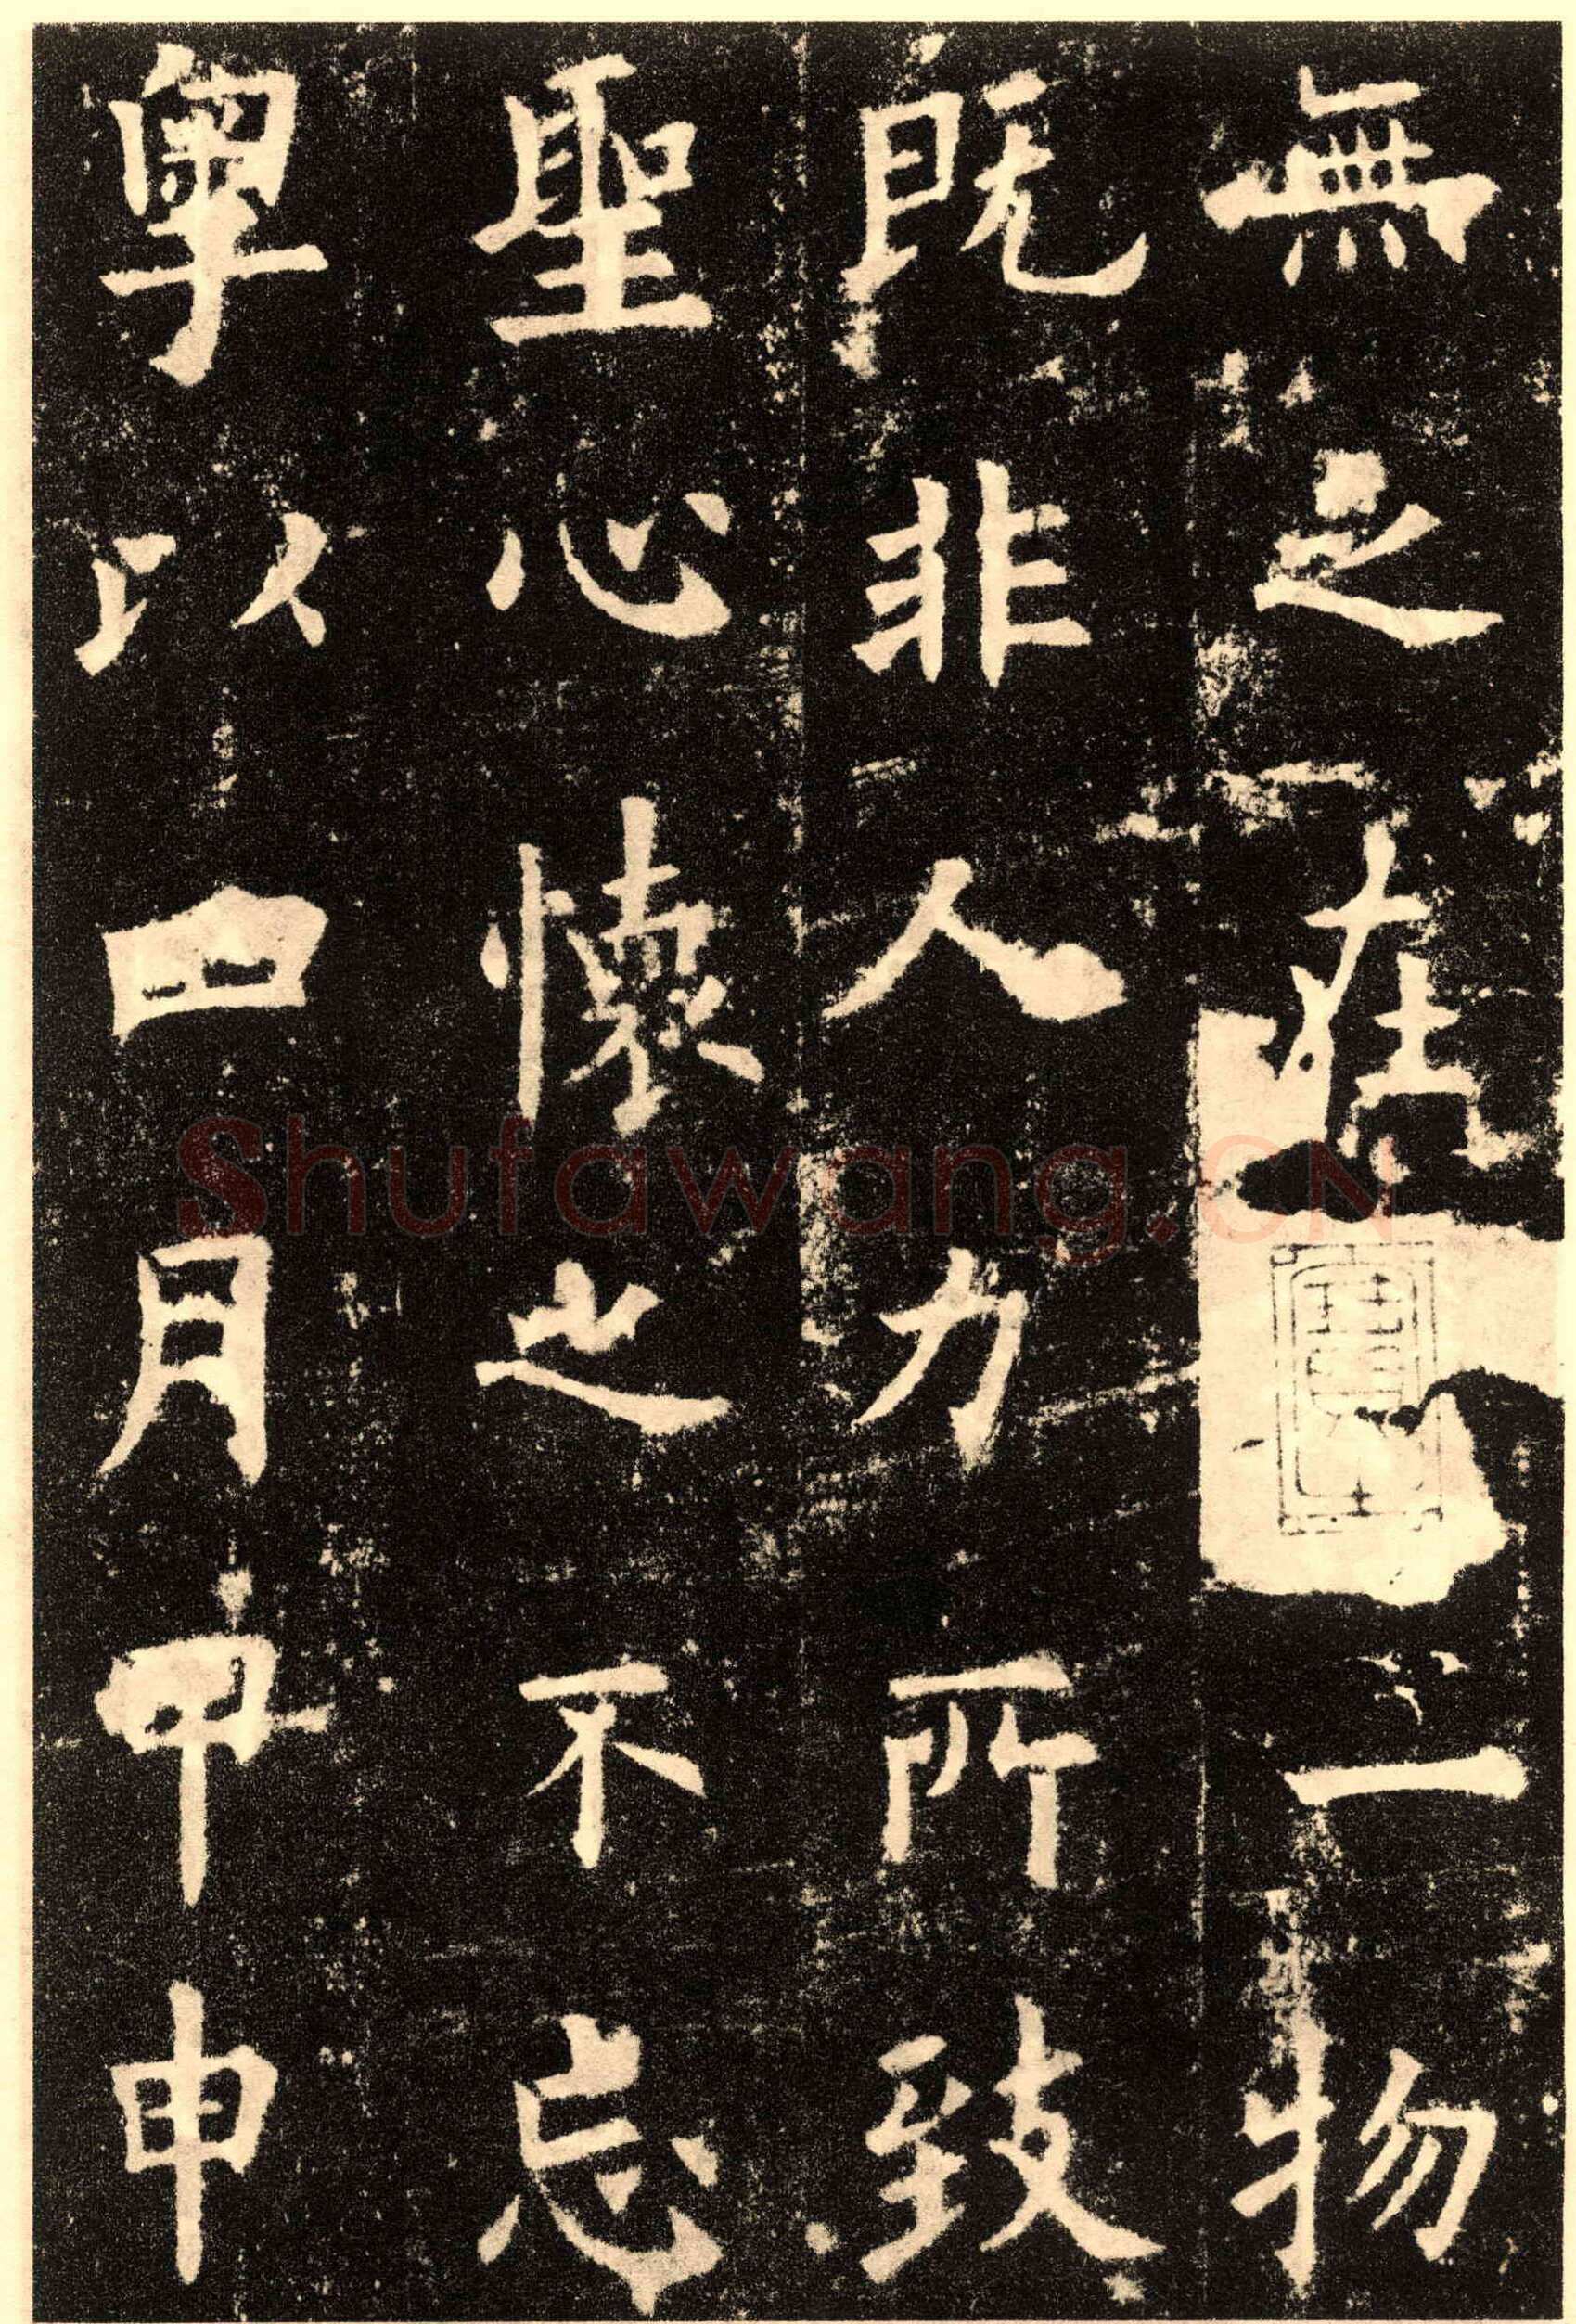 無之在一物
既非人力所致
聖心懷之不忘
粤以四月甲申
Shufawang.CN